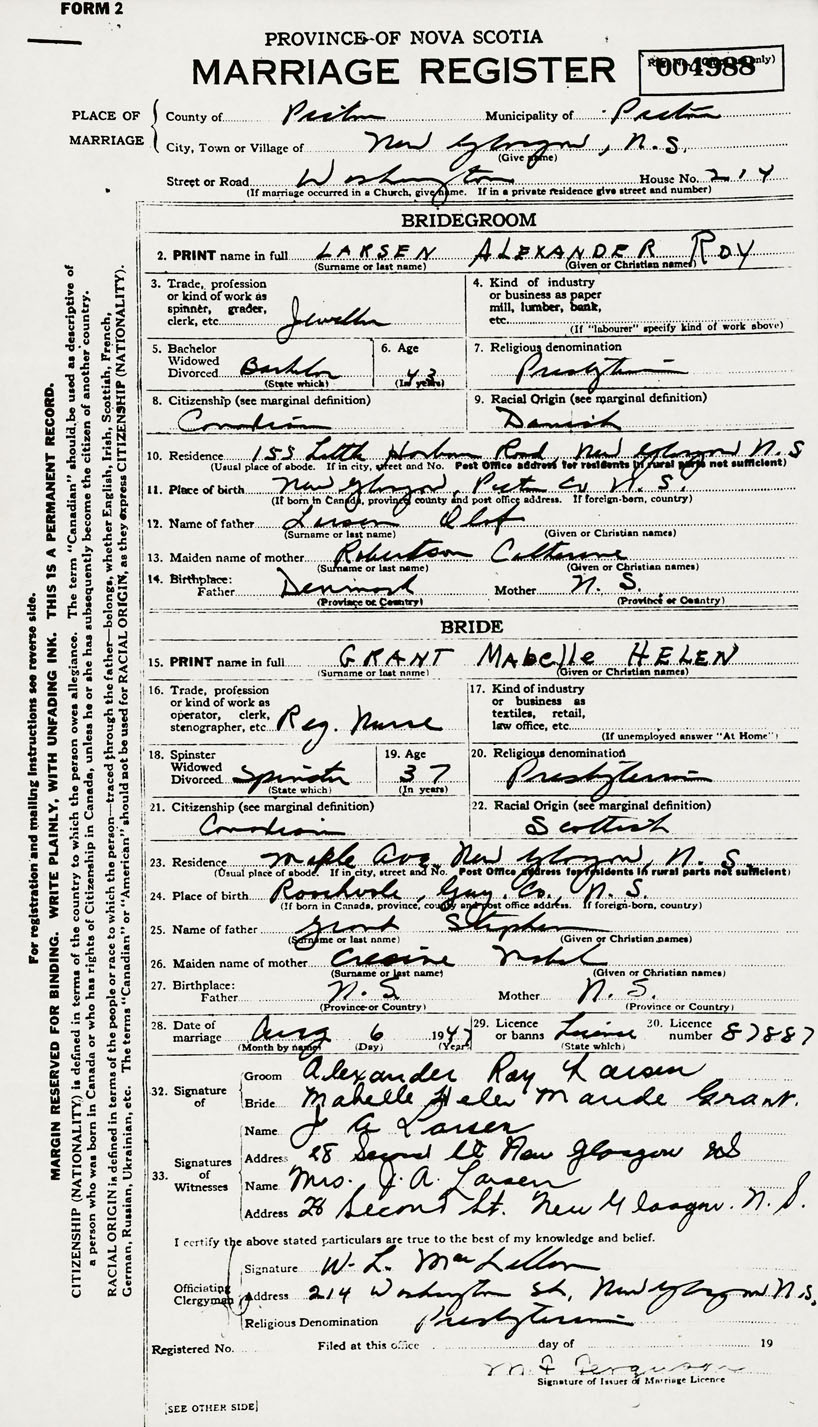 FORM 2
PROVINCE OF NOVA SCOTIA
MARRIAGE REGISTER
004988
PLACE OF MARRIAGE
County of Pictou Municipality of Pictou
City, Town or Village of New Glasgow, N.S.
(Give name)
Street or Road Washington House No. 214
(If marriage occurred in a Church, give name. If in a private residence give street and number)
BRIDEGROOM
2. PRINT name in full LARSEN ALEXANDER ROY
(Surname or last name) (Given or Christian names)
3. Trade, profession or kind of work as spinner, grader, clerk, etc. Jeweller
4. Kind of industry or business as paper mill, lumber, bank, etc.
(If "labourer" specify kind of work above)
5. Bachelor Widowed Divorced Bachelor
(State which)
6. Age 43
(In years)
7. Religious denomination Presbyterian
8. Citizenship (see marginal definition) Canadian
9. Racial Origin (see marginal definition) Danish
10. Residence 155 Little Harbour Road, New Glasgow N S
(Usual place of abode. If in city, street and No. Post Office address for residents in rural parts not sufficient)
11. Place of birth New Glasgow, Pictou Co N. S.
(If born in Canada, province, county and post office address. If foreign-born, country)
12. Name of father Larsen Olof
(Surname or last name) (Given or Christian names)
13. Maiden name of mother Robertson Catherine
(Surname or last name) (Given or Christian names)
14. Birthplace:
Father Denmark Mother N. S.
(Province or Country) (Province or Country)
BRIDE
15. PRINT name in full GRANT Mabelle HELEN
(Surname or last name) (Given or Christian names)
16. Trade, profession or kind of work as operator, clerk, stenographer, etc. Reg. Nurse
17. Kind of industry or business as textiles, retail, law office, etc.
(If unemployed answer "At Home")
18. Spinster Widowed Divorced Spinster
(State which)
19. Age 37
(In years)
20. Religious denomination Presbyterian
21. Citizenship (see marginal definition) Canadian
22. Racial Origin (see marginal definition) Scottish
23. Residence Maple Ave, New Glasgow, N. S.
(Usual place of abode. If in city, street and No. Post Office address for residents in rural parts not sufficient)
24. Place of birth Guy. Co., N. S.
(If born in Canada, province, county and post office address. If foreign-born, country)
25. Name of father Grant Stephen
(Surname or last name) (Given or Christian names)
26. Maiden name of mother
(Surname or last name) (Given or Christian names)
27. Birthplace:
Father N. S. Mother N. S.
(Province or Country) (Province or Country)
28. Date of marriage Aug 6 1947
(Month by name) (Day) (Year)
29. Licence or banns License
(State which)
30. Licence number 87887
32. Signature of
Groom Alexander Roy Larsen
Bride Mabelle Helen Maude Grant.
33. Signatures of Witnesses
Name J A Larsen
Address 28 Second St New Glasgow NS
Name Mrs. J. A. Larsen
Address 28 Second St. New Glasgow. N. S.
I certify the above stated particulars are true to the best of my knowledge and belief.
Officiating Clergyman
Signature W. L. MacLellan
Address 214 Washington St, New Glasgow N.S.
Religious Denomination Presbyterian
Registered No. Filed at this office day of 19
M F Ferguson
Signature of Issuer of Marriage Licence
[SEE OTHER SIDE]
For registration and mailing instructions see reverse side.
MARGIN RESERVED FOR BINDING. WRITE PLAINLY, WITH UNFADING INK. THIS IS A PERMANENT RECORD.
CITIZENSHIP (NATIONALITY) is defined in terms of the country to which the person owes allegiance. The term "Canadian" should be used as descriptive of
a person who was born in Canada or who has rights of Citizenship in Canada, unless he or she has subsequently become the citizen of another country.
RACIAL ORIGIN is defined in terms of the people or race to which the person—traced through the father—belongs, whether English, Irish, Scottish, French,
German, Russian, Ukrainian, etc. The terms "Canadian" or "American" should not be used for RACIAL ORIGIN, as they express CITIZENSHIP (NATIONALITY).